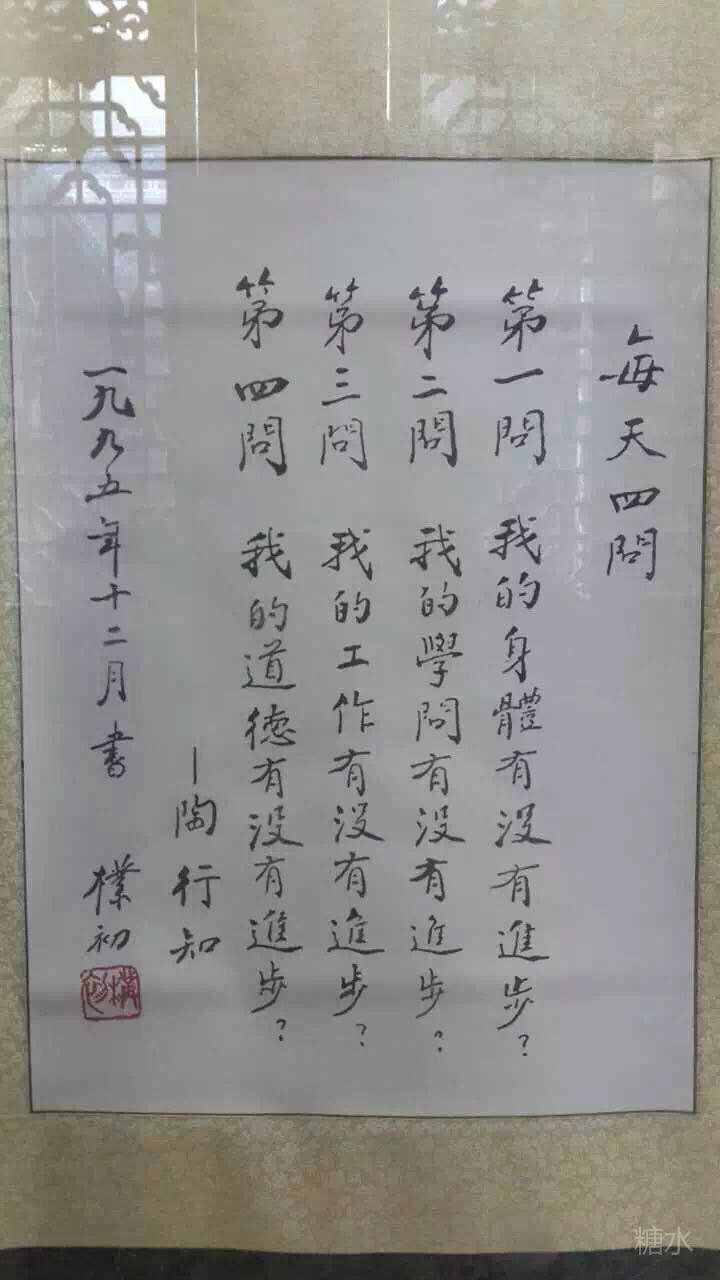 每天四問
第一問 我的身體有没有進步?
第二問 我的學問有没有進步?
第三問 我的工作有没有進步?
第四問 我的道德有没有進步?
—陶行知
一九九五年十二月書 樸初
樸初
糖水